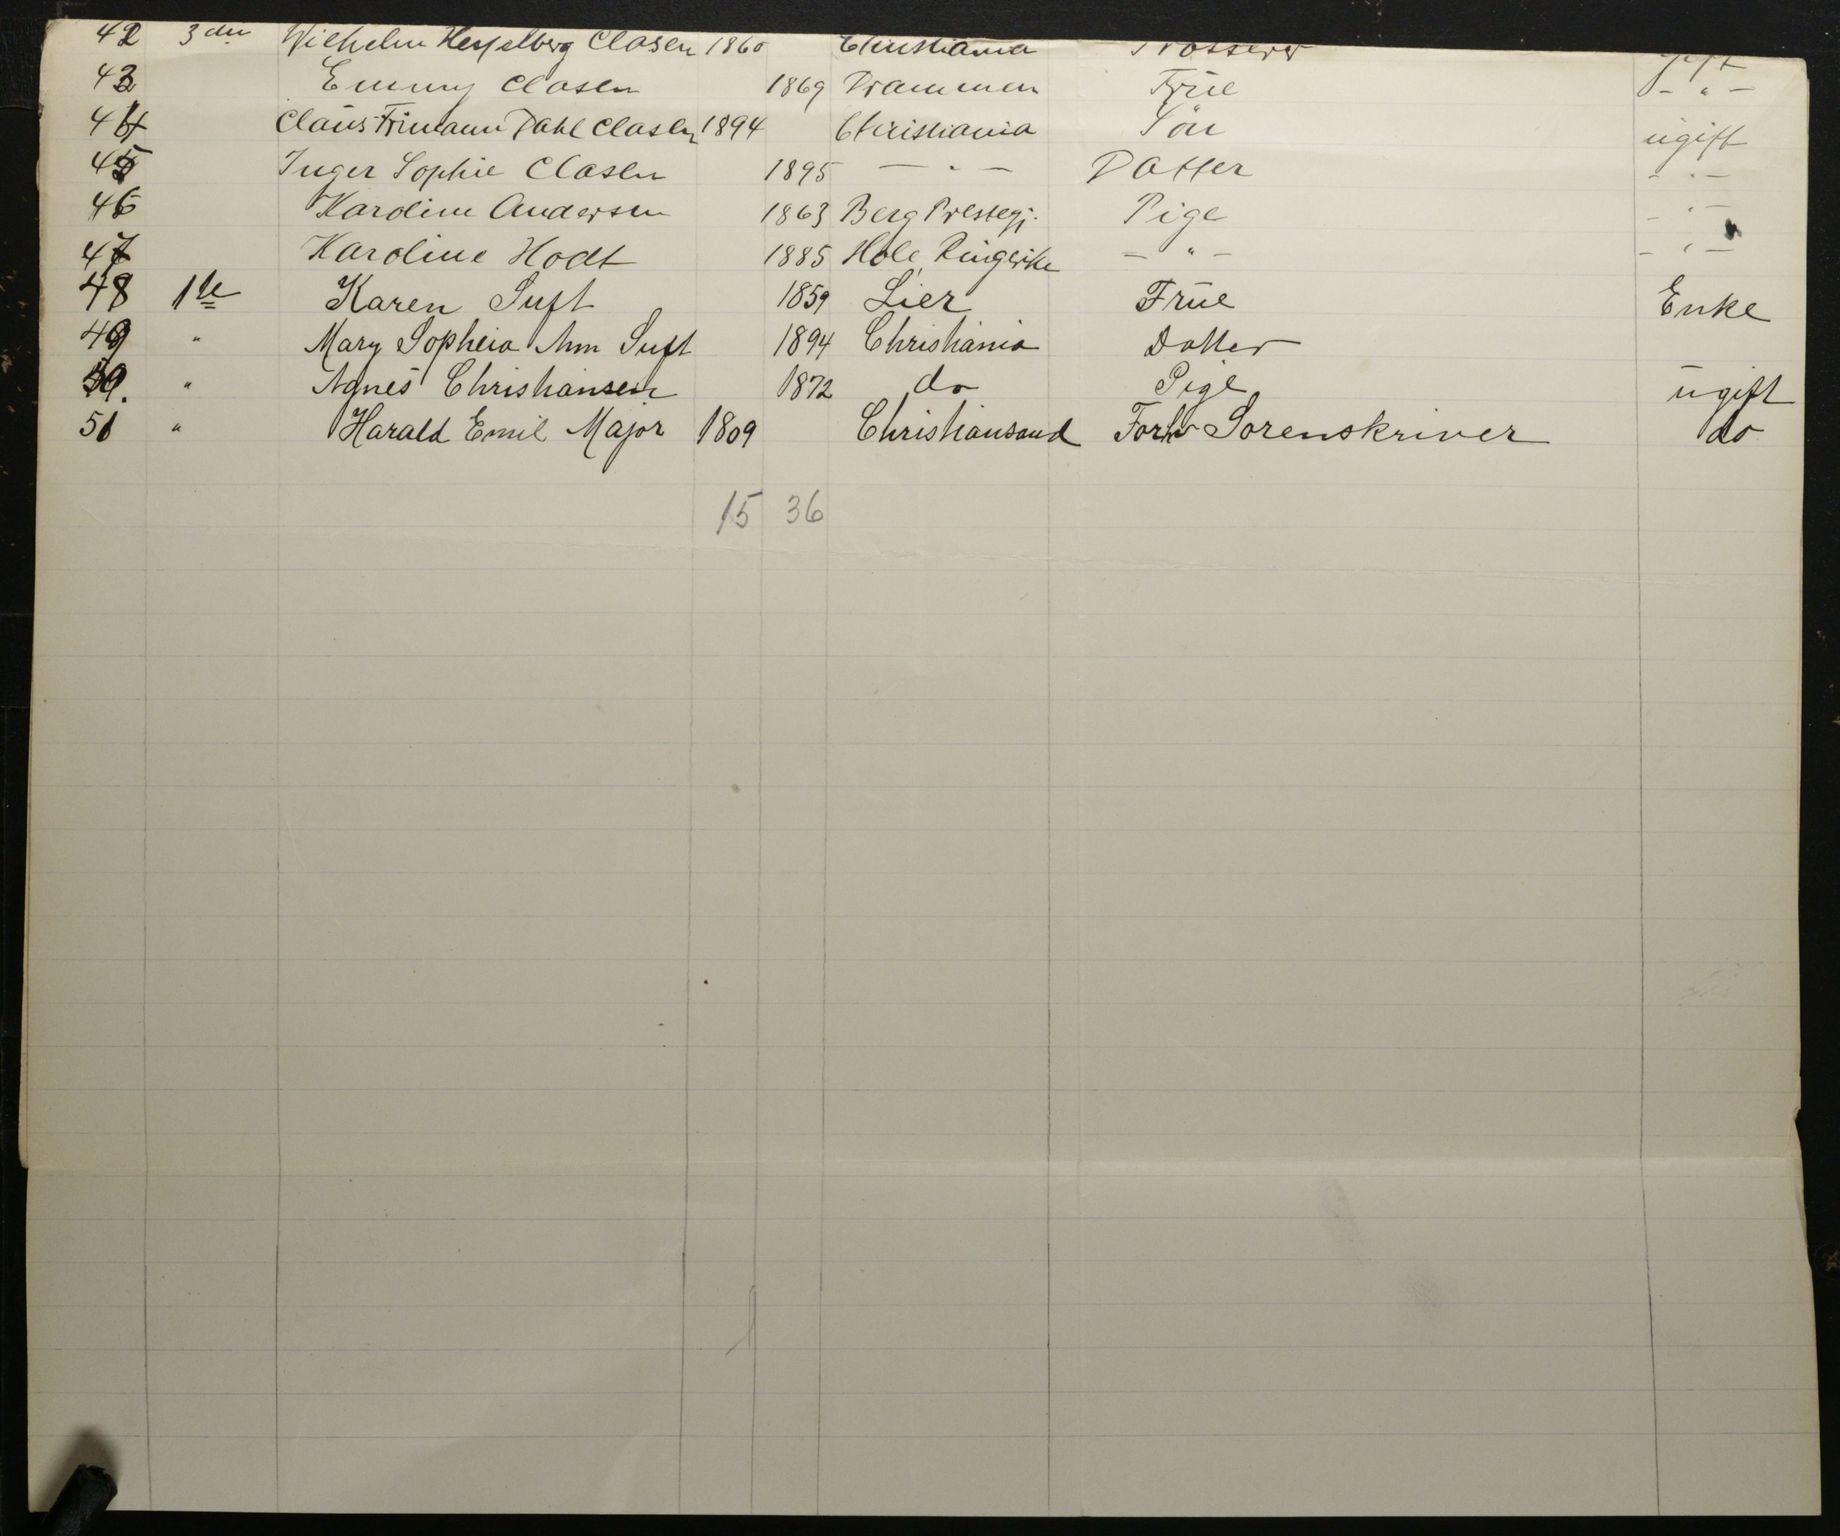 42 3die Wilhelm Hesselberg Clasen 1860 Christiania gift
43 Emmy Clasen 1869 Drammen Frue — " —
44 Claus Frimann Dahl Clasen 1894 Christiania Sön ugift
45 Inger Sophie Clasen 1895 — " — Datter — " —
46 Karoline Andersen 1863 Berg Prestegj. Pige — " —
47 Karoline Hodt 1885 Hole Ringerike — " — — " —
48 1ste Karen Suft 1859 Lier Frue Enke
49 " Mary Sopheia Suft 1894 Christiania Datter
50. " Agnes Christiansen 1872 do Pige ugift
51 " Harald Emil Major 1809 Christiansand Forhv Sorenskriver do
15 36